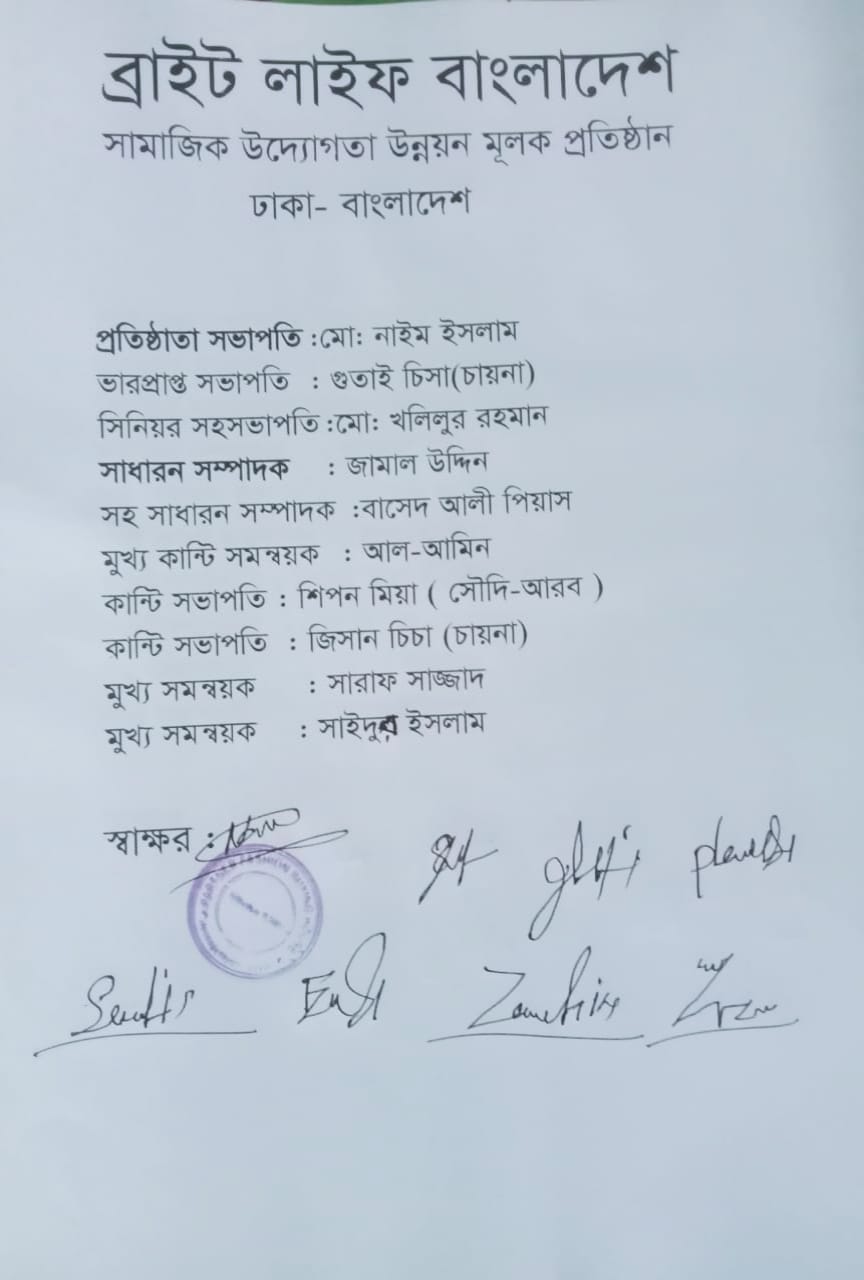 ব্রাইট লাইফ বাংলাদেশ
সামাজিক উদ্যোগতা উন্নয়ন মূলক প্রতিষ্ঠান
ঢাকা- বাংলাদেশ
প্রতিষ্ঠাতা সভাপতি :মো: নাইম ইসলাম
ভারপ্রাপ্ত সভাপতি : গুতাই চিসা(চায়না)
সিনিয়র সহসভাপতি :মো: খলিলুর রহমান
সাধারন সম্পাদক : জামাল উদ্দিন
সহ সাধারন সম্পাদক :বাসেদ আলী পিয়াস
মুখ্য কান্টি সমন্বয়ক : আল-আমিন
কান্টি সভাপতি : শিপন মিয়া ( সৌদি-আরব )
কান্টি সভাপতি : জিসান চিচা (চায়না)
মুখ্য সমন্বয়ক : সারাফ সাজ্জাদ
মুখ্য সমন্বয়ক : সাইদুর ইসলাম
স্বাক্ষর :